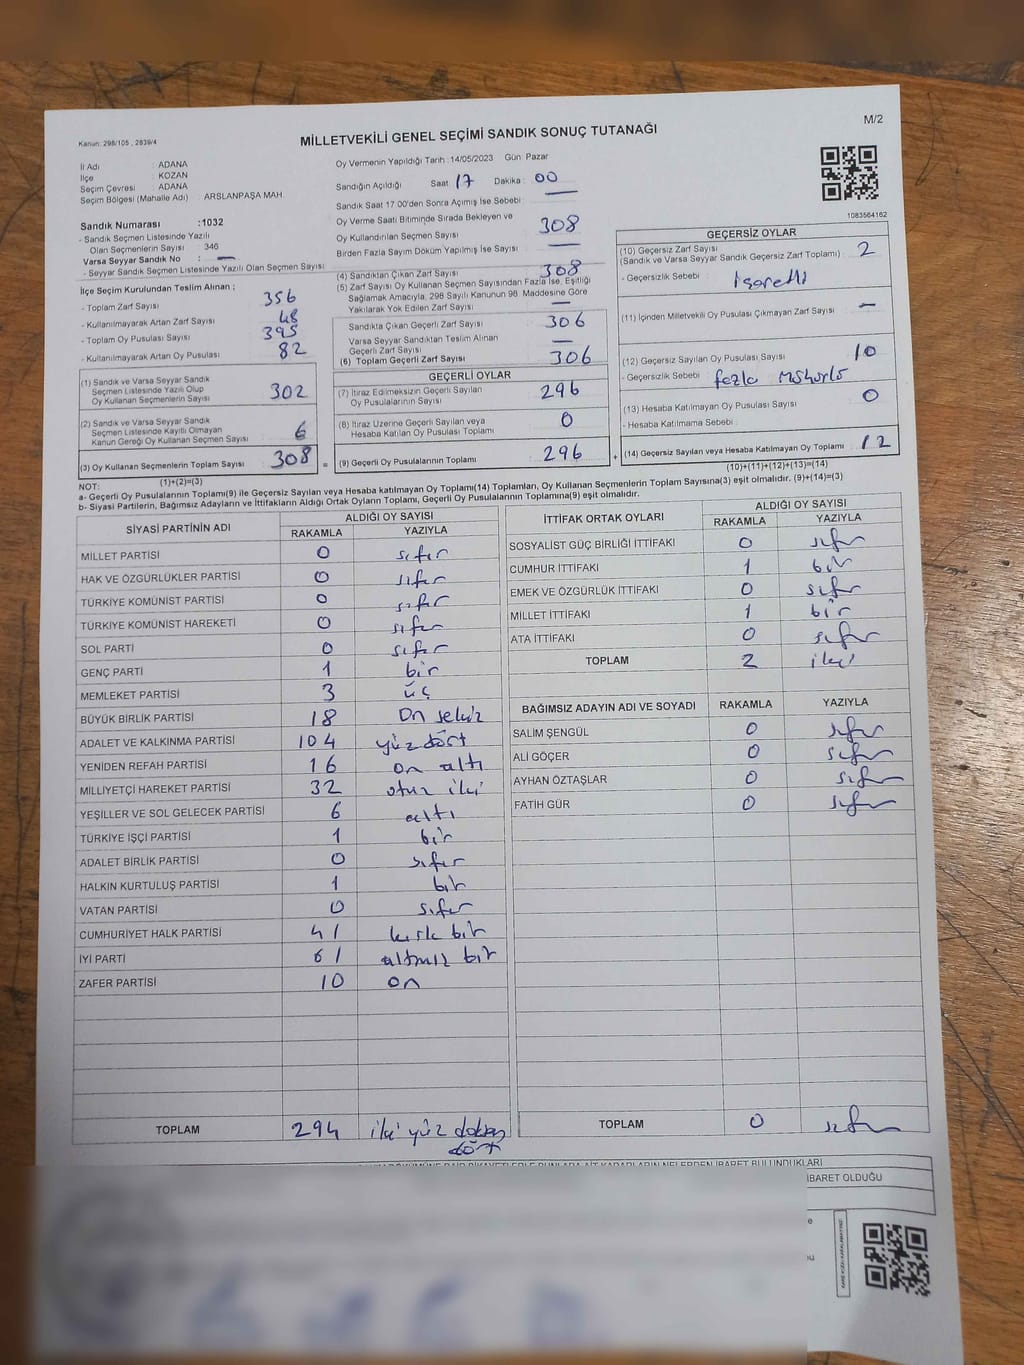 M/2
Kanun: 298/105 , 2839/4
MİLLETVEKİLİ GENEL SEÇİMİ SANDIK SONUÇ TUTANAĞI
İl Adı : ADANA
İlçe : KOZAN
Seçim Çevresi : ADANA
Seçim Bölgesi (Mahalle Adı) : ARSLANPAŞA MAH
Sandık Numarası :1032
- Sandık Seçmen Listesinde Yazılı
Olan Seçmenlerin Sayısı : 346
Varsa Seyyar Sandık No : —
- Seyyar Sandık Seçmen Listesinde Yazılı Olan Seçmen Sayısı
İlçe Seçim Kurulundan Teslim Alınan ;
- Toplam Zarf Sayısı 356
- Kullanılmayarak Artan Zarf Sayısı 48
- Toplam Oy Pusulası Sayısı 395
- Kullanılmayarak Artan Oy Pusulası 82
(1) Sandık ve Varsa Seyyar Sandık
Seçmen Listesinde Yazılı Olup
Oy Kullanan Seçmenlerin Sayısı 302
(2) Sandık ve Varsa Seyyar Sandık
Seçmen Listesinde Kayıtlı Olmayan
Kanun Gereği Oy Kullanan Seçmen Sayısı 6
(3) Oy Kullanan Seçmenlerin Toplam Sayısı 308 =
(1)+(2)=(3)
Oy Vermenin Yapıldığı Tarih : 14/05/2023 Gün: Pazar
Sandığın Açıldığı Saat : 17 Dakika : 00
Sandık Saat 17.00'den Sonra Açımış İse Sebebi : —
Oy Verme Saati Bitiminde Sırada Bekleyen ve
Oy Kullandırılan Seçmen Sayısı 308
Birden Fazla Sayım Döküm Yapılmış İse Sayısı —
(4) Sandıktan Çıkan Zarf Sayısı 308
(5) Zarf Sayısı Oy Kullanan Seçmen Sayısından Fazla İse, Eşitliği
Sağlamak Amacıyla, 298 Sayılı Kanunun 98. Maddesine Göre
Yakılarak Yok Edilen Zarf Sayısı —
Sandıkta Çıkan Geçerli Zarf Sayısı 306
Varsa Seyyar Sandıktan Teslim Alınan
Geçerli Zarf Sayısı —
(6) Toplam Geçerli Zarf Sayısı 306
GEÇERLİ OYLAR
(7) İtiraz Edilmeksizin Geçerli Sayılan
Oy Pusulalarının Sayısı 296
(8) İtiraz Üzerine Geçerli Sayılan veya
Hesaba Katılan Oy Pusulası Toplamı 0
(9) Geçerli Oy Pusulalarının Toplamı 296 +
1083564162
GEÇERSİZ OYLAR
(10) Geçersiz Zarf Sayısı
(Sandık ve Varsa Seyyar Sandık Geçersiz Zarf Toplamı) 2
- Geçersizlik Sebebi : İşaretli
(11) İçinden Milletvekili Oy Pusulası Çıkmayan Zarf Sayısı —
(12) Geçersiz Sayılan Oy Pusulası Sayısı 10
- Geçersizlik Sebebi : fazla
(13) Hesaba Katılmayan Oy Pusulası Sayısı 0
- Hesaba Katılmama Sebebi :
(14) Geçersiz Sayılan veya Hesaba Katılmayan Oy Toplamı 12
(10)+(11)+(12)+(13)=(14)
NOT:
a- Geçerli Oy Pusulalarının Toplamı(9) ile Geçersiz Sayılan veya Hesaba katılmayan Oy Toplamı(14) Toplamları, Oy Kullanan Seçmenlerin Toplam Sayısına(3) eşit olmalıdır. (9)+(14)=(3)
b- Siyasi Partilerin, Bağımsız Adayların ve İttifakların Aldığı Ortak Oyların Toplamı, Geçerli Oy Pusulalarının Toplamına(9) eşit olmalıdır.
SİYASİ PARTİNİN ADI ALDIĞI OY SAYISI
RAKAMLA YAZIYLA
MİLLET PARTİSİ 0 sıfır
HAK VE ÖZGÜRLÜKLER PARTİSİ 0 sıfır
TÜRKİYE KOMÜNİST PARTİSİ 0 sıfır
TÜRKİYE KOMÜNİST HAREKETİ 0 sıfır
SOL PARTİ 0 sıfır
GENÇ PARTİ 1 bir
MEMLEKET PARTİSİ 3 üç
BÜYÜK BİRLİK PARTİSİ 18 On sekiz
ADALET VE KALKINMA PARTİSİ 104 yüz dört
YENİDEN REFAH PARTİSİ 16 on altı
MİLLİYETÇİ HAREKET PARTİSİ 32 otuz iki
YEŞİLLER VE SOL GELECEK PARTİSİ 6 altı
TÜRKİYE İŞÇİ PARTİSİ 1 bir
ADALET BİRLİK PARTİSİ 0 sıfır
HALKIN KURTULUŞ PARTİSİ 1 bir
VATAN PARTİSİ 0 sıfır
CUMHURİYET HALK PARTİSİ 41 kırk bir
İYİ PARTİ 61 altmış bir
ZAFER PARTİSİ 10 on
TOPLAM 294 iki yüz doksan
dört
İTTİFAK ORTAK OYLARI ALDIĞI OY SAYISI
RAKAMLA YAZIYLA
SOSYALİST GÜÇ BİRLİĞİ İTTİFAKI 0 sıfır
CUMHUR İTTİFAKI 1 bir
EMEK VE ÖZGÜRLÜK İTTİFAKI 0 sıfır
MİLLET İTTİFAKI 1 bir
ATA İTTİFAKI 0 sıfır
TOPLAM 2 iki
BAĞIMSIZ ADAYIN ADI VE SOYADI RAKAMLA YAZIYLA
SALİM ŞENGÜL 0 sıfır
ALİ GÖÇER 0 sıfır
AYHAN ÖZTAŞLAR 0 sıfır
FATİH GÜR 0 sıfır
TOPLAM 0 sıfır
BULUNDUKLARI
İBARET OLDUĞU